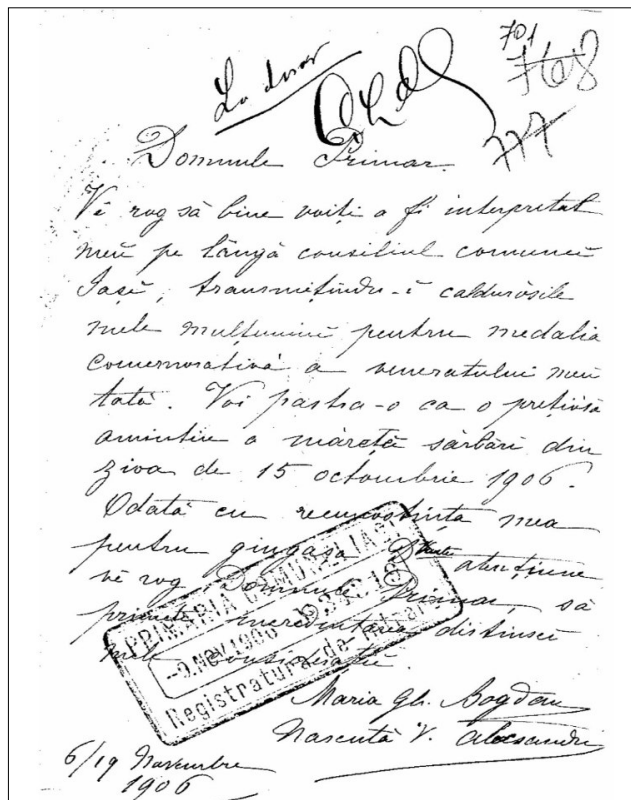 701
768
777
La dosar
Domnule Primar.
Vě rog să bine voiți a fi interpretat
meŭ pe lângă consiliul comuneĭ
Iașĭ, transmețindu-ĭ caldurósile
mele mulțumirĭ pentru medalia
comemorativă a veneratului meŭ
tată. Voi pastra-o ca o prețiósă
amintire a mărețĭ sărbărĭ din
ziva de 15 octombrie 1906.
Odată cu recunoștința mea
pentru gingașa atențiune
vĕ rog Domnule Primar, să
primiți incredințarea distinseĭ
mele consideratiĭ.
PRIMĂRIA COMUNEI IASI
-9.NOV.1906
Registratura de Intrare
Maria Gh. Bogdan
Nascută V. Alecsandri
6/19 Novembre
1906